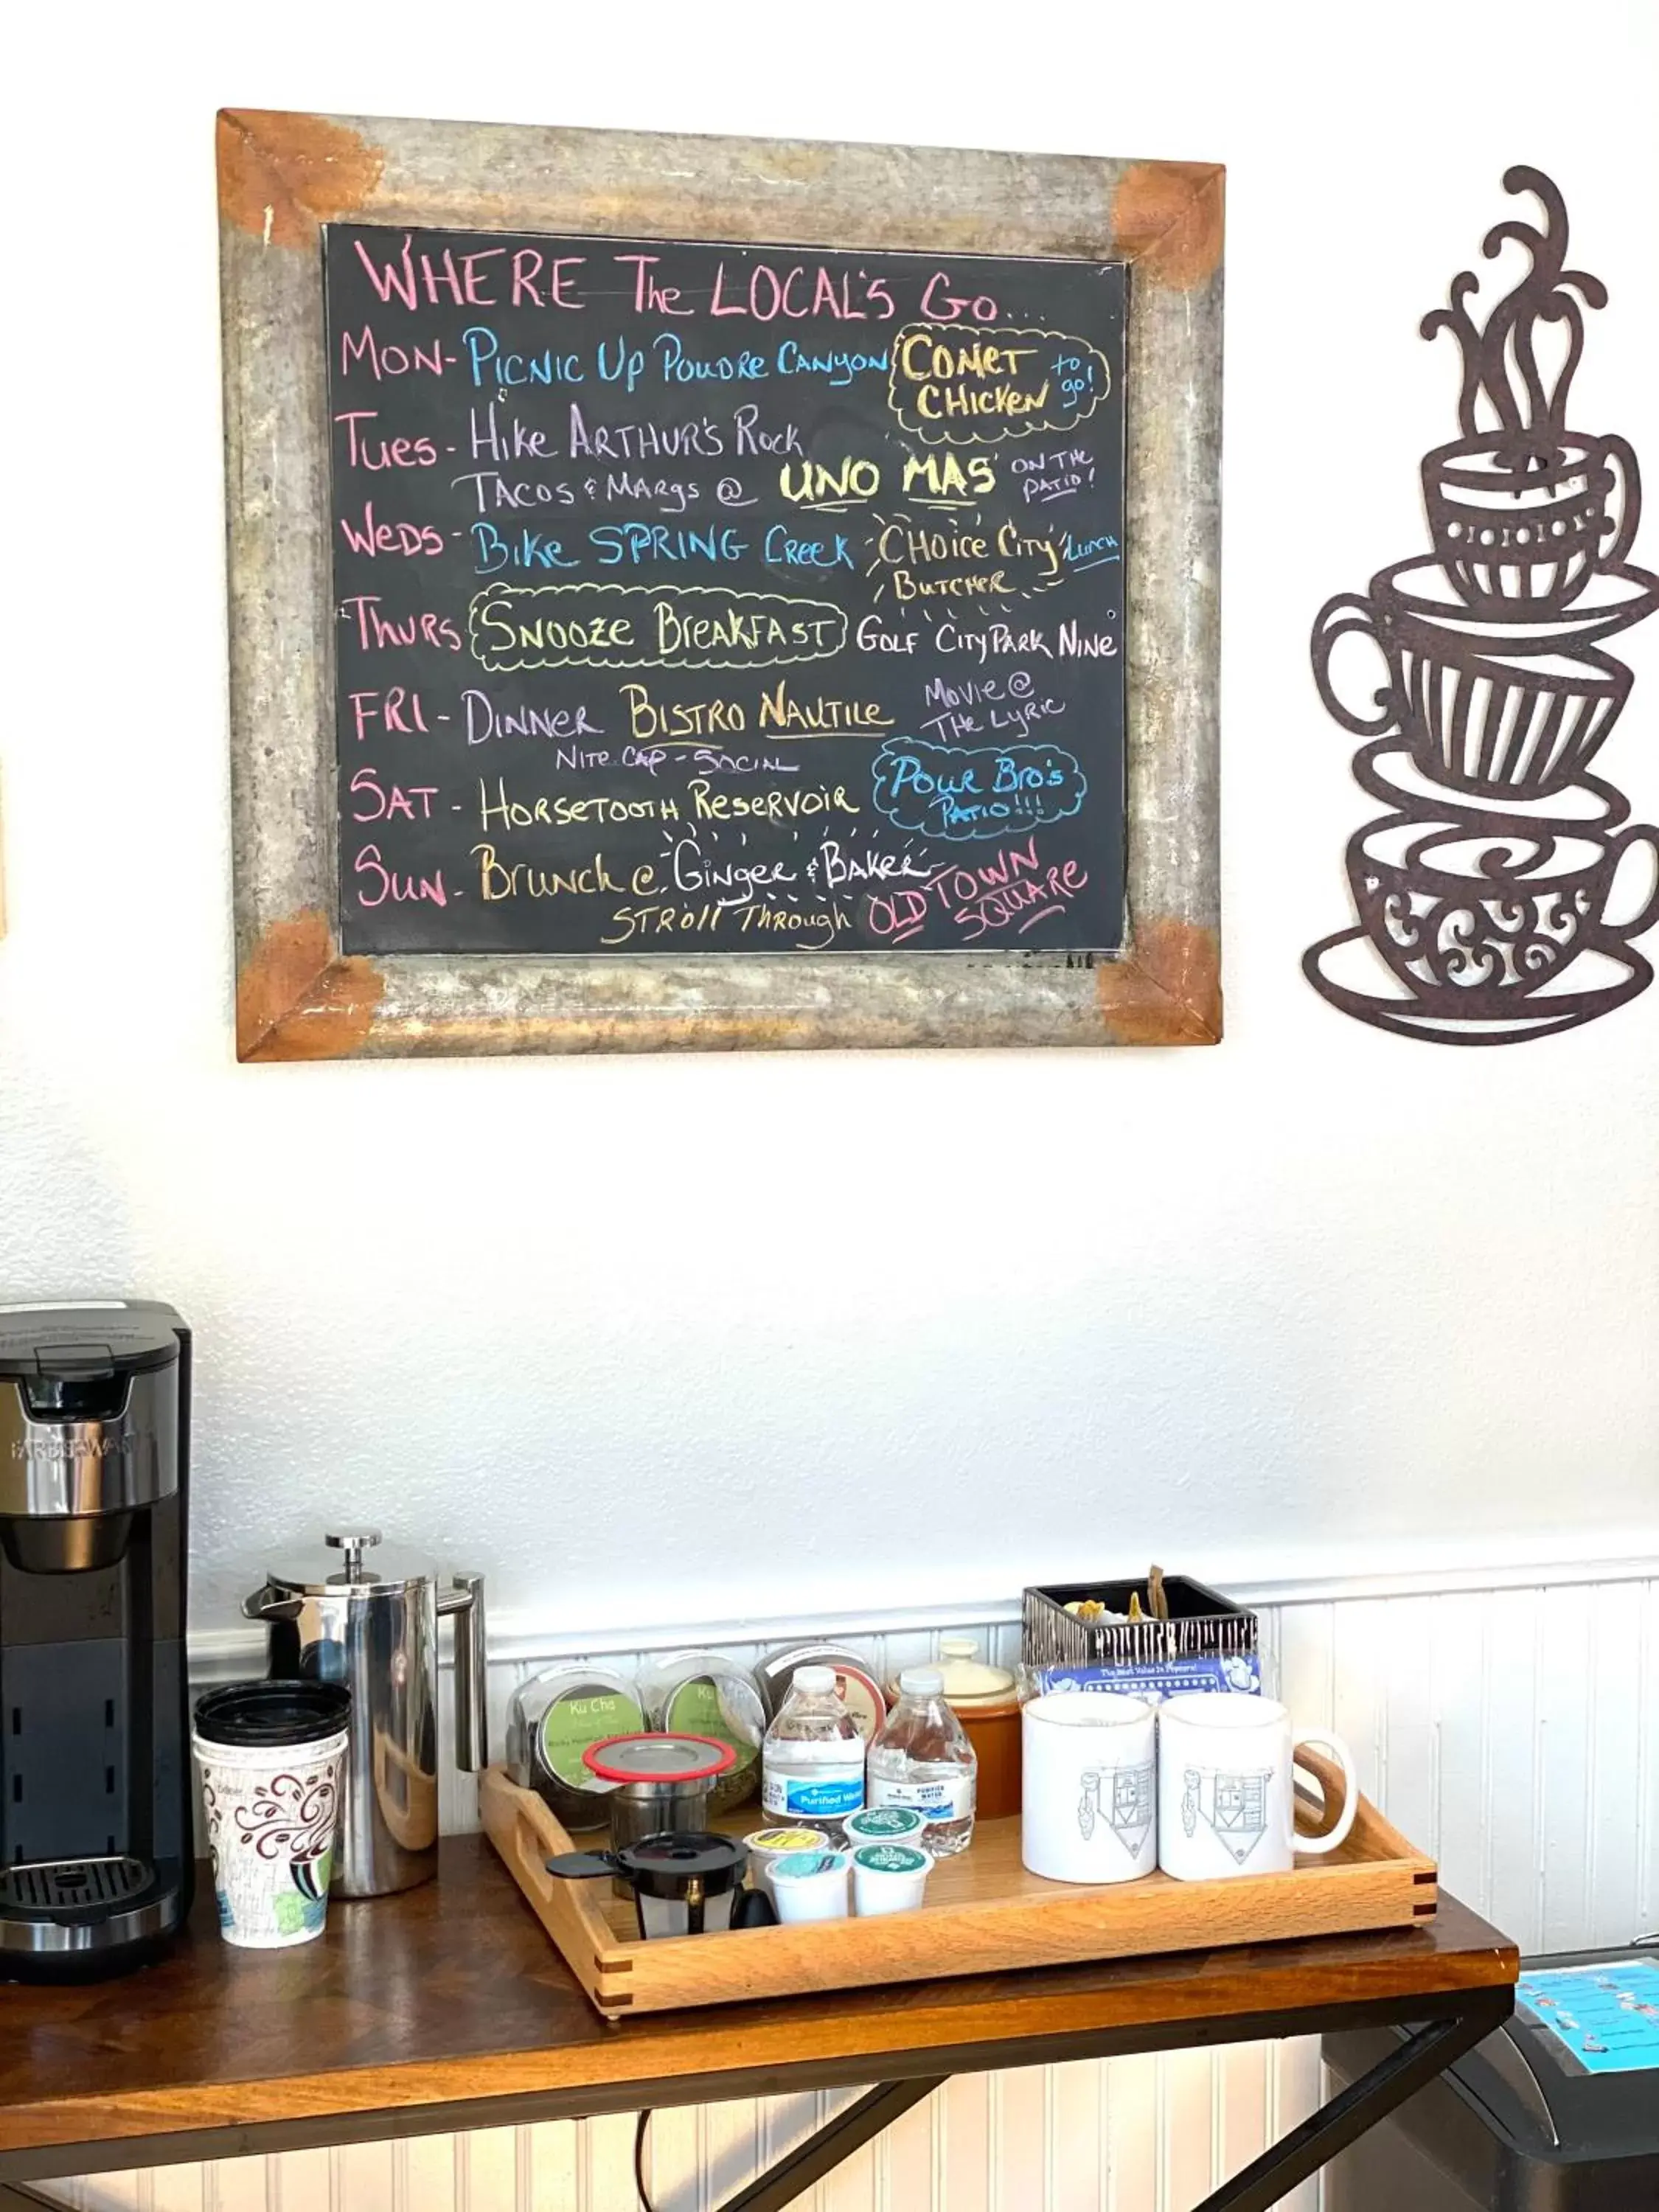 WHERE The LOCAL'S Go...
MON- PICNIC Up POUDRE CANYON COMET CHICKEN to go!
Tues- Hike ARTHUR'S Rock
TACOS & MARgs @ UNO MAS ON THE PATIO!
WeDS- Bike SPRING Creek CHOice City BUTCHER Lunch
THURS SNOOZE BREAKFAST GOLF CITY PARK NINE
FRI- DINNER BISTRO NAUTILE MOVIE @ THE LYRIC
NITE CAP - SOCIAL
SAT - HORSETOOTH RESERVOIR POUR BRO'S PATIO!!!
SUN- Brunch @ GINGER & BAKER
STROll THROUGH OLD TOWN SQUARE
FARBERWARE
Ku Cha
Ku
The Best Value In Popcorn!
Purified Wa
PURIFIED WATER